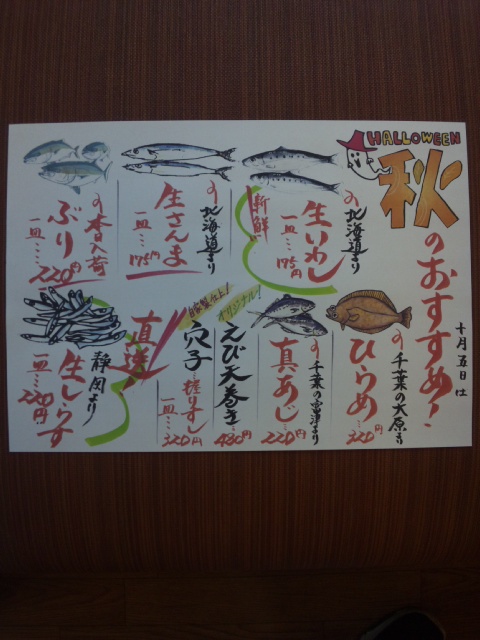 HALLOWEEN
秋のおすすめ!
十月五日は
の北海道より
生いわし
一皿…175円
新鮮
の北海道より
生さんま
一皿…175円
の本日入荷
ぶり
一皿…220円
の千葉の大原より
ひらめ
…220円
の千葉の富津より
真あじ
…220円
オリジナル!
えび天巻き
…480円
自家製仕込!
穴子
一皿…320円
直送!
静岡より
生しらす
一皿…220円